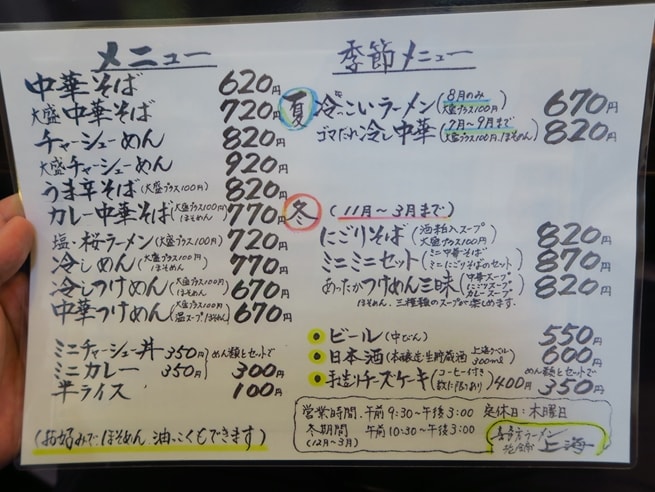 メニュー
中華そば 620円
大盛中華そば 720円
チャーシューめん 820円
大盛チャーシューめん 920円
うま辛そば(大盛プラス100円) 820円
カレー中華そば(大盛プラス100円 ほそめん) 770円
塩・桜ラーメン(大盛プラス100円) 720円
冷しめん(大盛プラス100円 ほそめん) 770円
冷しつけめん(大盛プラス100円 ほそめん) 670円
中華つけめん(大盛プラス100円 温スープ、ほそめん) 670円
ミニチャーシュー丼 350円
ミニカレー 350円 めん類とセットで 300円
半ライス 100円
(お好みでほそめん 油っこくもできます)
季節メニュー
夏 冷っこいラーメン(8月のみ 大盛プラス100円) 670円
ゴマだれ冷し中華(7月~9月まで 大盛プラス100円、ほそめん) 820円
冬 (11月~3月まで)
にごりそば(酒粕入スープ 大盛プラス100円) 820円
ミニミニセット(ミニ中華そば ミニにごりそばのセット) 870円
あったかつけめん三昧(中華スープ にごりスープ カレースープ 820円
ほそめん、三種類のスープで楽しめます。
ビール(中びん) 550円
日本酒(本醸造生貯蔵酒 上海ラベル 300ml) 600円
手造りチーズケーキ(コーヒー付き 数に限りあり) 400円 めん類とセットで 350円
営業時間・午前9:30~午後3:00 定休日:木曜日
冬期間 午前10:30~午後3:00
(12月~3月)
喜多方ラーメン
上海